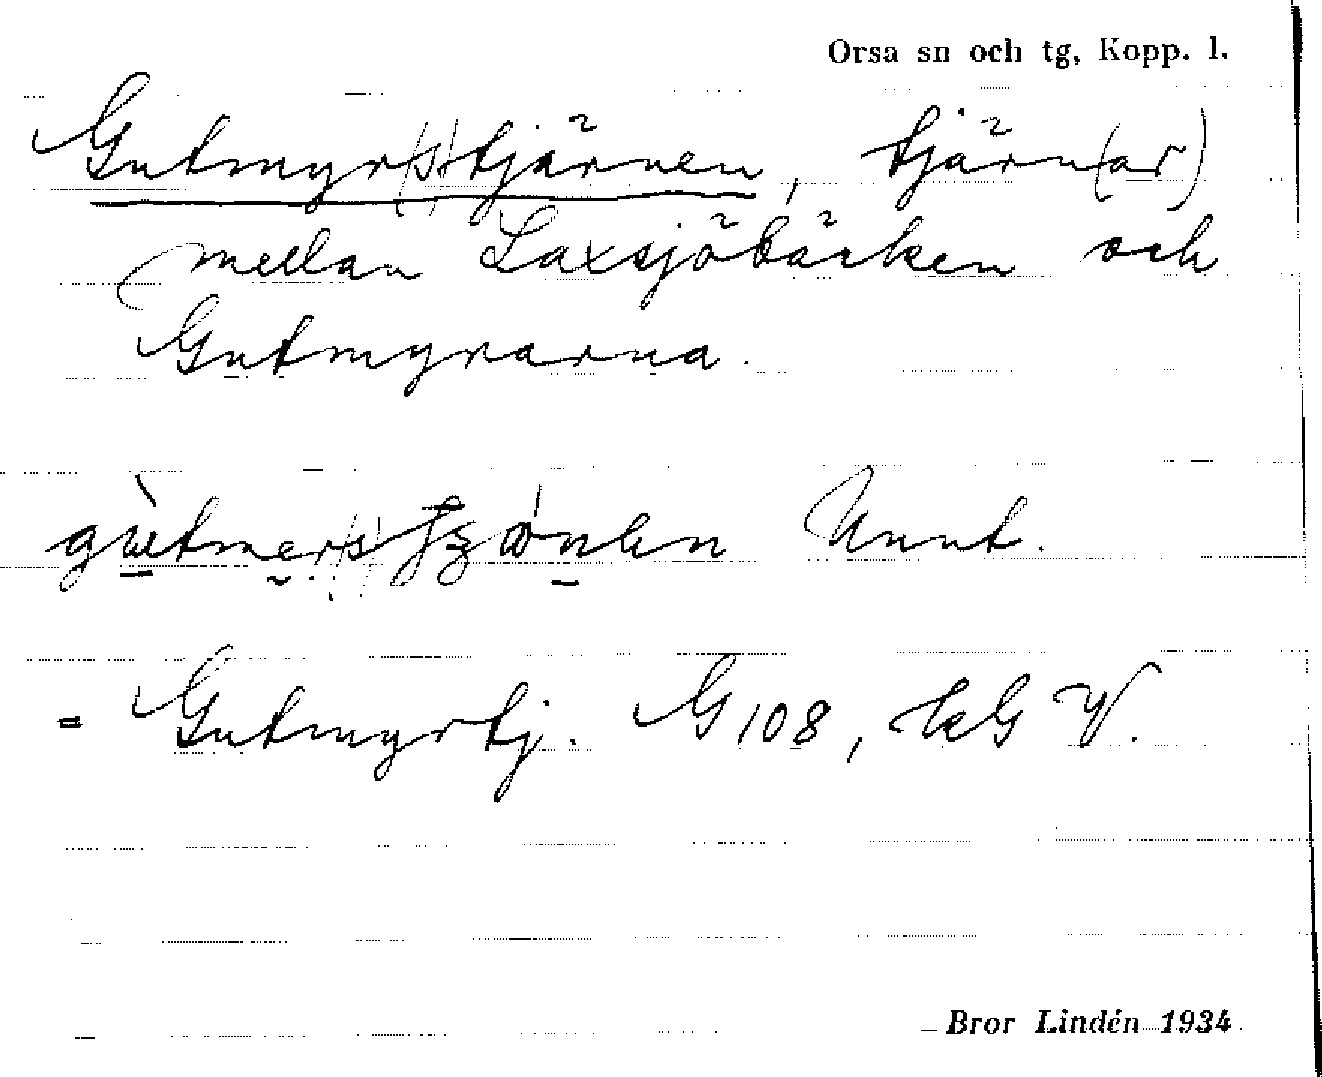 Orsa sn och tg, Kopp. l.
Gutmyr(s)tjärnen, tjärn(ar)
mellan Laxsjöbäcken och
Gutmyrarna.
Unnt.
= Gutmyrtj. G 108, kG V.
Bror Lindén 1934